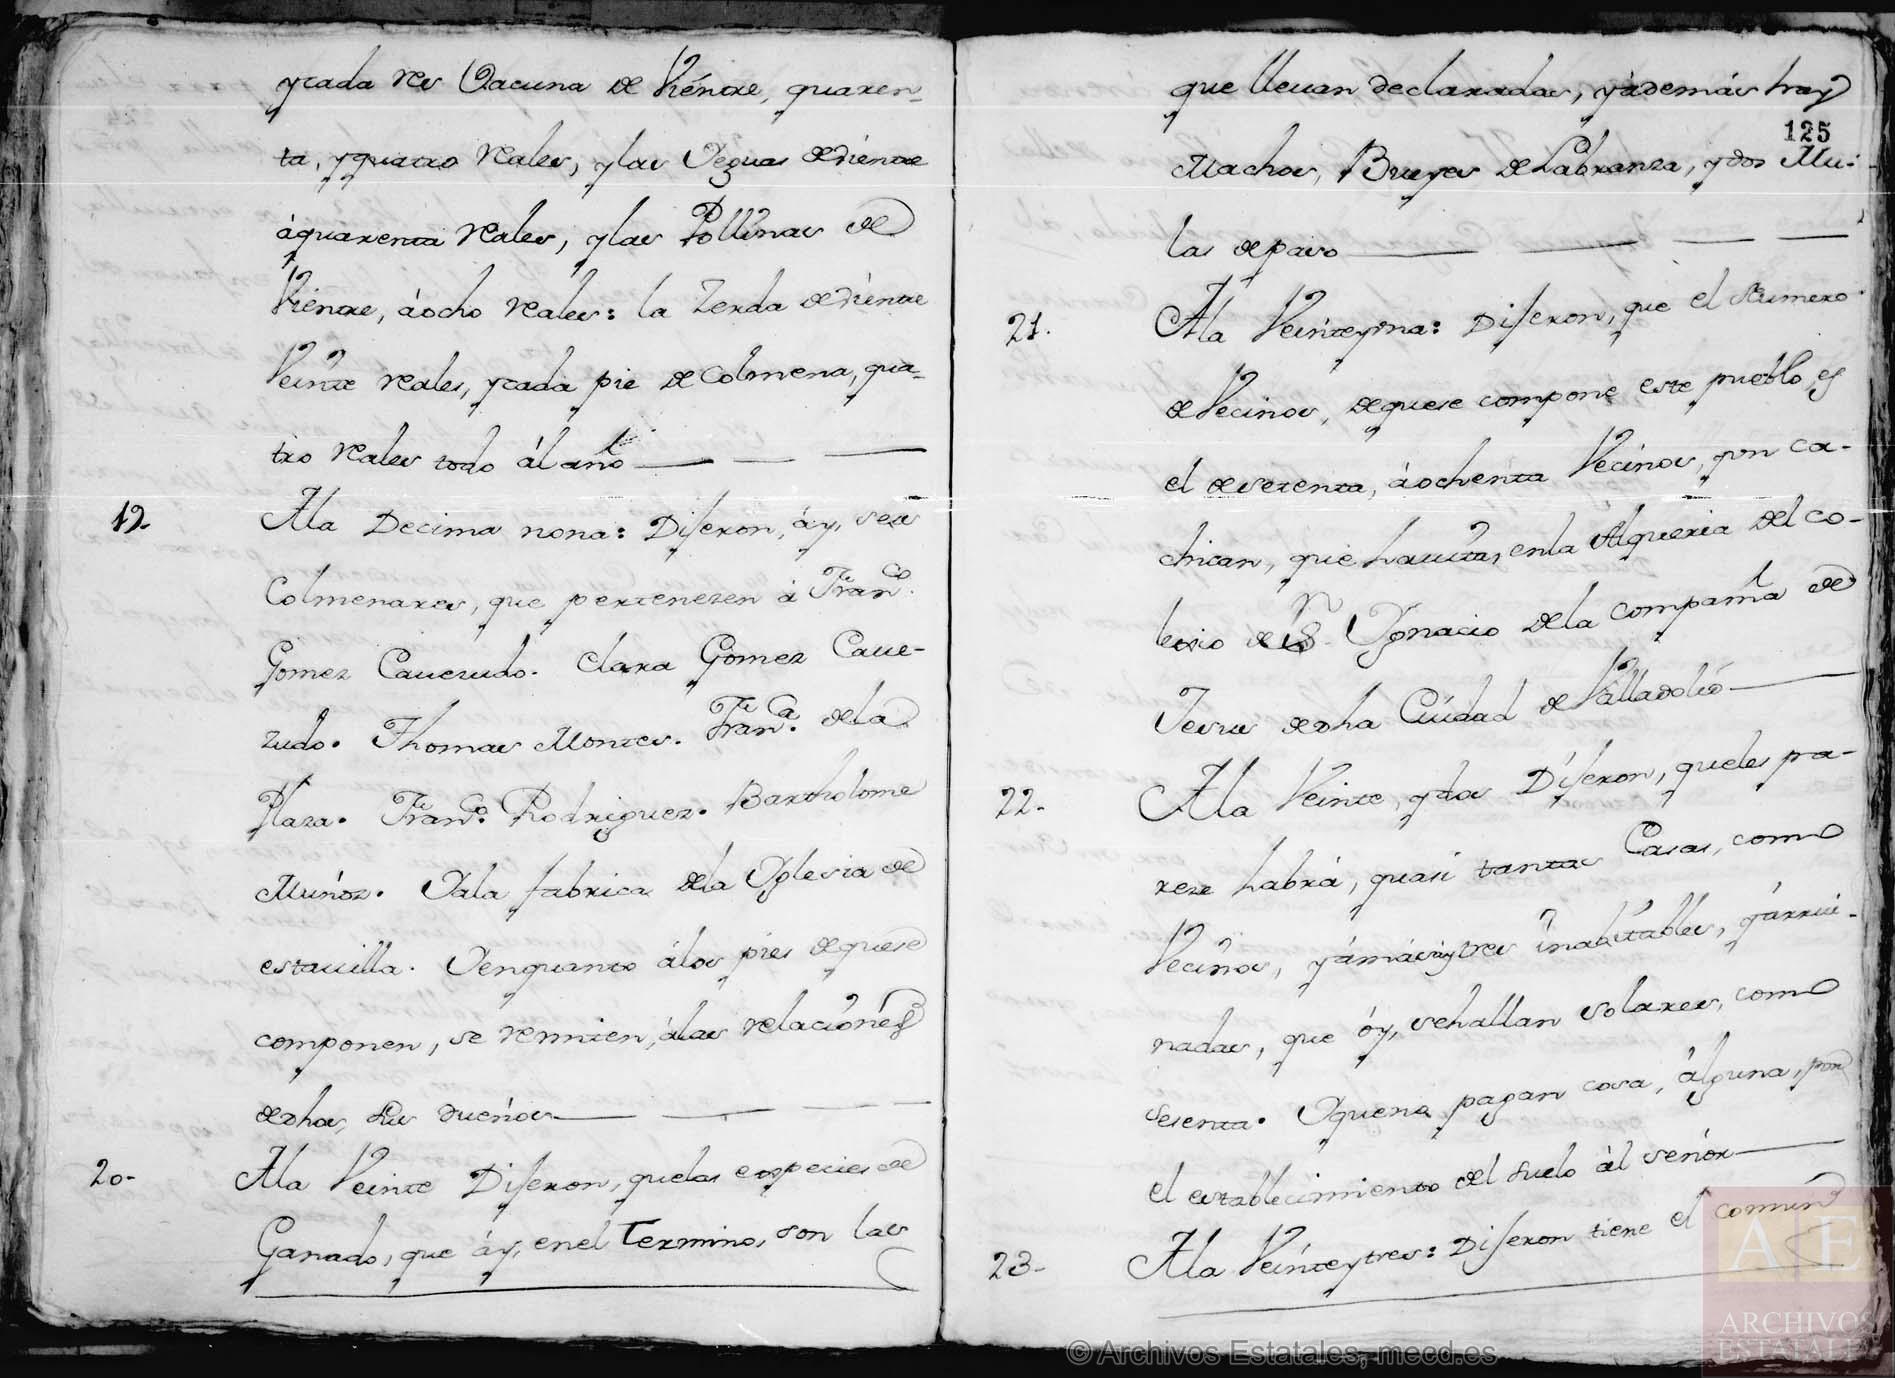 ycada res Vacuna de Vientre, quaren-
ta, yquatro reales, ylas Yeguas de vientre
áquarenta reales, ylas Pollinas de
Vientre, áocho reales: la Zerda de vientre
Veinte reales, ycada pie de Colmena, qua-
tro reales todo ál año
19. Ala Decima nona: Dijeron, áy, seis
Colmenares, que pertenezen á Franco.
Gomez Cauezudo. Clara Gomez Caue-
zudo. Thomas Montes. Franca. dela
Plaza. Franco. Rodriguez. Bartholome
Muñoz. Yala fabrica dela Yglesia de
estauilla. Yenquanto álos pies deque se
componen, se remiten, álas relaciónes
de dhos, sus dueños
20- Ala Veinte Dijeron, quelas especies de
Ganado, que áy, enel Termino, son las
que lleuan declaradas, yádemás hay
125
Machos, Bueyes de Labranza, ydos Mu-
las de paso
21. Ala Veinteyvna: Dijeron, que el Numero
de Vecinos, deque se compone este pueblo, es
el de setenta, áochenta Vecinos, yvn Ca-
chican, que hauita, enla Alqueria del Co-
lexio de Sn. Ygnacio dela Compañia de
Jesus de dha Ciudad de Valladolid
22- Ala Veinte, ydos Dijeron, queles pa-
reze habrá, quasi tantas Casas, como
Vecinos, yámás áy tres inabitables, yárrui-
nadas, que óy, sehallan solares, como
sesenta. Yquena pagan cosa, álguna, por
el establecimiento del suelo ál señor
23- Ala Veinteytres: Dijeron tiene el comun
© Archivos Estatales, mecd.es
AE
ARCHIVOS
ESTATALES